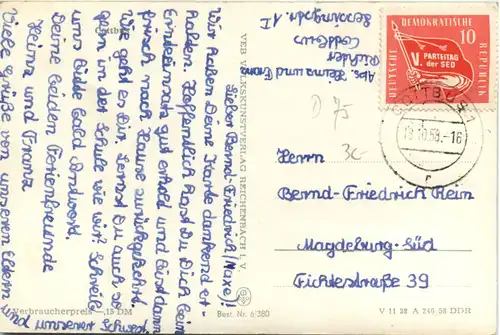 Cottbus
Lieber Bernd-Friedrich (Maxe)!
Wir haben Deine Karte dankend er-
halten. Hoffentlich hast Du Dich beim
Ernteeinsatz gut erholt und bist dann
frisch nach Hause zurückgekehrt.
Wie geht es Dir. Lernst Du auch so
viel in der Schule wie wir? Schreibe
uns bitte bald Antwort.
Deine beiden Ferienfreunde
Heinz und Franz
Viele Grüße von unseren Eltern und
unserer Schwester
Verbraucherpreis —,15 DM
VEB VOLKSKUNSTVERLAG REICHENBACH I. V.
Best. Nr. 6/380
Abs. Heinz und Franz
Richter
Cottbus
DEUTSCHE DEMOKRATISCHE REPUBLIK
10
V. PARTEITAG
der SED
COTTBUS 1
18.10.58.-16
r
D 75
3c
Herrn
Bernd-Friedrich Rein
Magdeburg-Süd
Fichtestraße 39
V 11 28 A 240/58 DDR